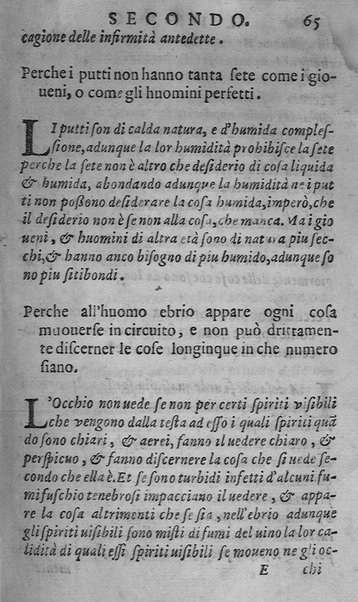 SECONDO. 65
cagione delle infirmità antedette.
Perche i putti non hanno tanta sete come i gio-
ueni, o come gli huomini perfetti.
LI putti son di calda natura, e d'humida comples-
sione, adunque la lor humidità prohibisce la sete
perche la sete non è altro che desiderio di cosa liquida
& humida, abondando adunque la humidità ne i put
ti non possono desiderare la cosa humida, imperò, che
il desiderio non è se non alla cosa, che manca. Ma i gio
ueni, & huomini di altra età sono di natura piu sec-
chi, & hanno anco bisogno di piu humido, adunque so
no piu sitibondi.
Perche all'huomo ebrio appare ogni cosa
muouerse in circuito, e non può drittamen-
te discerner le cose longinque in che numero
siano.
L'Occhio non uede se non per certi spiriti visibili
che vengono dalla testa ad essi i quali spiriti quā
do sono chiari, & aerei, fanno il uedere chiaro, &
perspicuo, & fanno discernere la cosa che si uede se-
condo che ella è. Et se sono turbidi infetti d'alcuni fu-
mi fuschio tenebrosi impacciano il uedere, & appa-
re la cosa altrimenti che se sia, nell'ebrio adunque
gli spiriti uisibili sono misti di fumi del uino la lor ca-
lidità di quali essi spiriti uisibili se moueno ne gli oc-
E chi